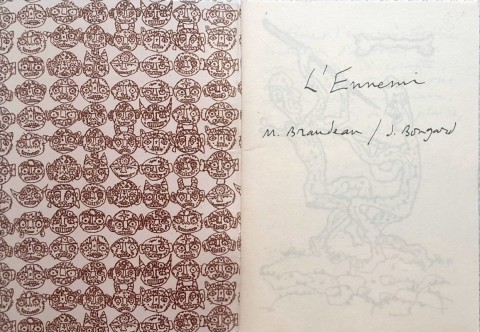 L'Ennemi
M. Braudeau / J. Bongard